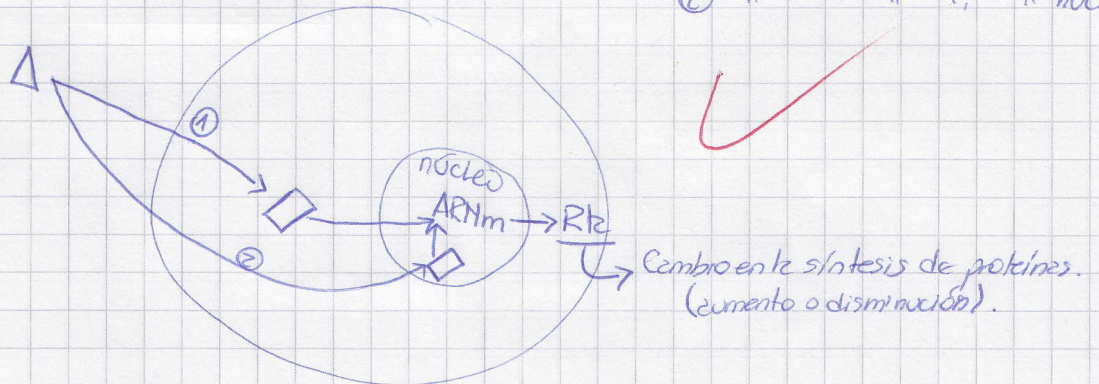 ② " " " nuc
①
núcleo
ARNm
Rta
②
Cambro en la síntesis de proteínas.
(aumento o disminución).